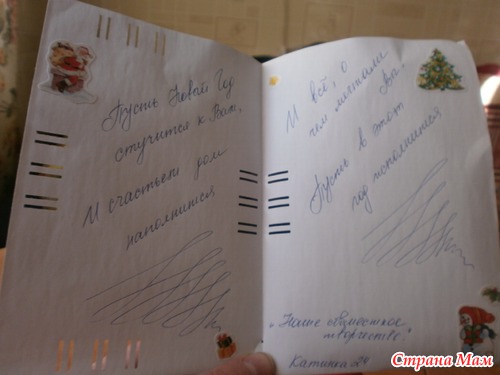 Пусть Новый Год
стучится к Вам,
И счастьем дом
наполнится
И всё, о
чем мечтали
Вы,
Пусть в этот
год исполнится
"Наше совместное
творчество."
Катинка24
Страна Мам